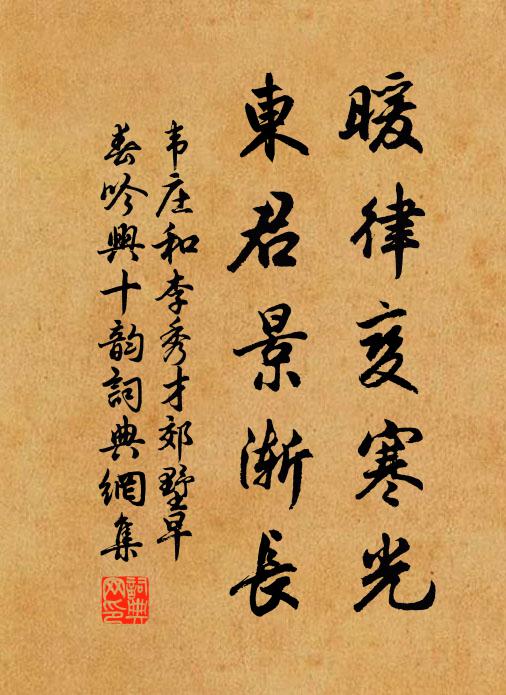 暖律变寒光
東君景漸長
韦庄和李秀才郊墅早
春吟興十韵詞典網集
詞典网印